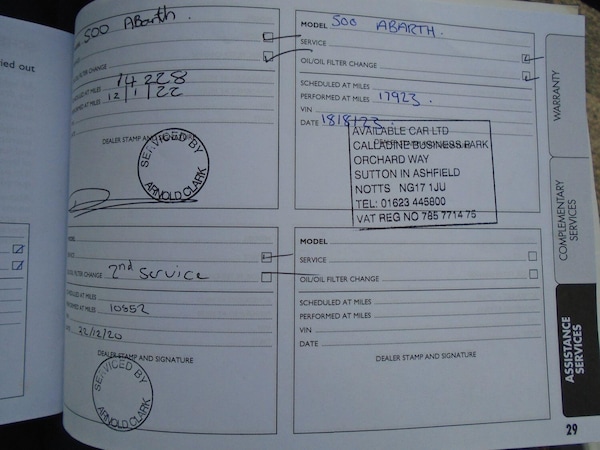 ied out
500 Abarth
FILTER CHANGE
AT MILES 14228
AT MILES 12/1/22
DEALER STAMP AND SIGNATURE
SERVICED BY
ARNOLD CLARK
MODEL 500 ABARTH.
SERVICE
OIL/OIL FILTER CHANGE
SCHEDULED AT MILES
PERFORMED AT MILES 17923.
VIN
DATE 18/8/23.
AVAILABLE CAR LTD
CALLADINE BUSINESS PARK
ORCHARD WAY
SUTTON IN ASHFIELD
NOTTS NG17 1JU
TEL: 01623 445800
VAT REG NO 785 7714 75
OIL FILTER CHANGE 2nd Service
AT MILES
AT MILES 10552
22/12/20
DEALER STAMP AND SIGNATURE
SERVICED BY
ARNOLD CLARK
MODEL
SERVICE
OIL/OIL FILTER CHANGE
SCHEDULED AT MILES
PERFORMED AT MILES
VIN
DATE
DEALER STAMP AND SIGNATURE
WARRANTY
COMPLEMENTARY
SERVICES
ASSISTANCE
SERVICES
29